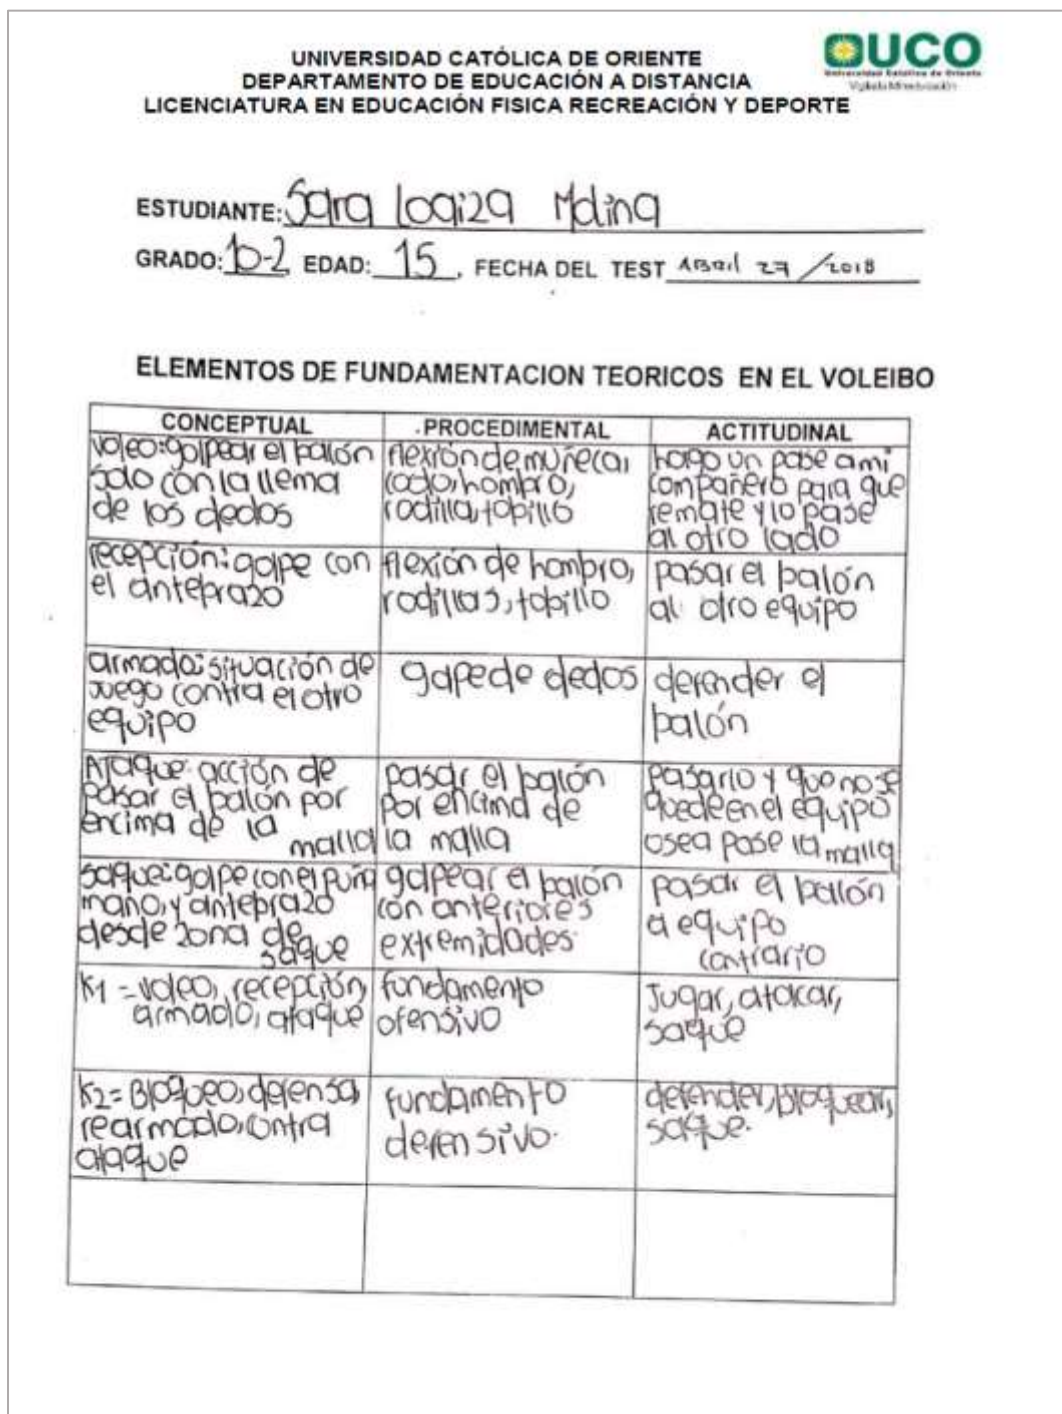 UNIVERSIDAD CATÓLICA DE ORIENTE
DEPARTAMENTO DE EDUCACIÓN A DISTANCIA
LICENCIATURA EN EDUCACIÓN FISICA RECREACIÓN Y DEPORTE
UCO
Universidad Católica de Oriente
Vigilada Mineducación
ESTUDIANTE: Sara Loaiza Molina
GRADO: 10-2 EDAD: 15, FECHA DEL TEST Abril 27/2018
ELEMENTOS DE FUNDAMENTACION TEORICOS EN EL VOLEIBO
CONCEPTUAL
PROCEDIMENTAL
ACTITUDINAL
voleo: golpear el balón
solo con la llema
de los dedos
flexión de muñeca,
codo, hombro,
rodilla, tobillo
hago un pase a mi
compañero para que
remate y lo pase
al otro lado
recepción: golpe con
el antebrazo
flexión de hombro,
rodillas, tobillo
pasar el balón
al otro equipo
armado: situación de
juego contra el otro
equipo
golpe de dedos
defender el
balón
Ataque: acción de
pasar el balón por
encima de la
malla
pasar el balón
por encima de
la malla
pasarlo y que no se
quede en el equipo
osea pase la malla
saque: golpe con el puño
mano, y antebrazo
desde zona de
saque
golpear el balón
con anteriores
extremidades.
pasar el balón
a equipo
contrario
K1 = voleo, recepción,
armado, ataque
fundamento
ofensivo
Jugar, atacar,
saque
K2 = Bloqueo, defensa,
rearmado, contra
ataque
fundamento
defensivo.
defender, Bloquear,
saque.